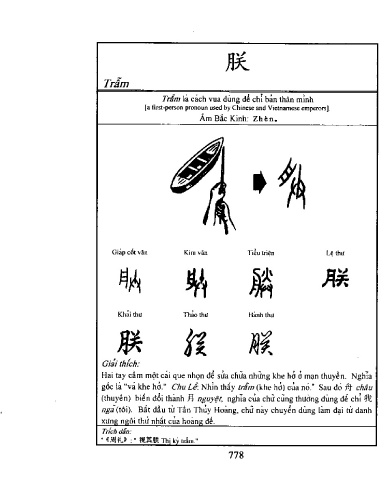 朕
Trẫm
Trẫm là cách vua dùng để chỉ bản thân mình
[a first-person pronoun used by Chinese and Vietnamese emperors].
Âm Bắc Kinh: Zhèn.
Giáp cốt văn Kim văn Tiểu triện Lệ thư
朕
Khải thư Thảo thư Hành thư
朕 朕 朕
Giải thích:
Hai tay cầm một cái que nhọn để sửa chữa những khe hở ở mạn thuyền. Nghĩa
gốc là "vá khe hở." Chu Lễ: Nhìn thấy trẫm (khe hở) của nó." Sau đó 舟 châu
(thuyền) biến đổi thành 月 nguyệt, nghĩa của chữ cũng thường dùng để chỉ 我
ngã (tôi). Bắt đầu từ Tần Thủy Hoàng, chữ này chuyển dùng làm đại từ danh
xưng ngôi thứ nhất của hoàng đế.
Trích dẫn:
"《周礼》: " 视其朕 Thị kỳ trẫm."
778